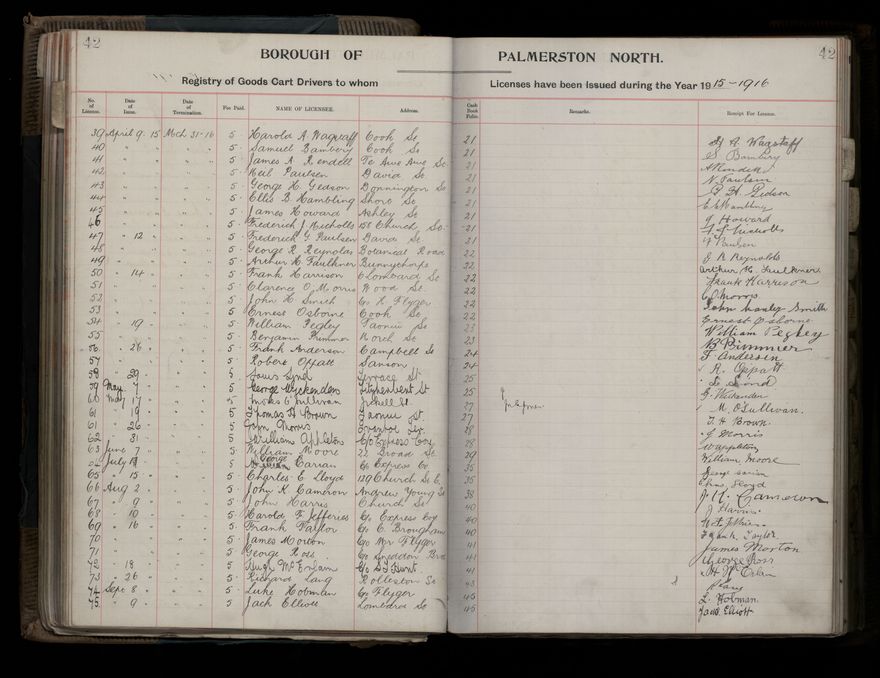 42
42
BOROUGH OF PALMERSTON NORTH.
Registry of Goods Cart Drivers to whom Licenses have been issued during the Year 1915-1916
No. of License. Date of Issue. Date of Termination. Fee Paid. NAME OF LICENSEE. Address. Cash Book Folio. Remarks. Receipt For License.
39 April 9 15 Mch 31-16 5 Harold A Wagstaff Cook St 21 H A Wagstaff
40 " " " 5 Samuel Bambery Cook St 21 S Bambery
41 " " " 5 James A Rendell Te Awe Awe St 21 A Rendell
42 " " " 5 Neil Paulsen David St 21 N Paulsen
43 " " " 5 George H Gedson Donnington St 21 G H Gedson
44 " " " 5 Ellis B Hambling Shore St 21 E B Hambling
45 " " " 5 James Howard Ashley St 21 J Howard
46 " " " 5 Frederick J Nicholls 158 Church St 21 F J Nicholls
47 " 12 " 5 Frederick G Paulsen David St 21 F Paulsen
48 " " " 5 George R Reynolds Botanical Road 22 G R Reynolds
49 " " " 5 Arthur H Faulkner Bunnythorpe 22 Arthur H. Faulkner
50 " 14 " 5 Frank Harrison Lombard St 22 Frank Harrison
51 " " " 5 Clarence O. Morris Wood St 22 C. O. Morris
52 " " " 5 John H Smith C/o H. Flyger 22 John Smith
53 " " " 5 Ernest Osborne Cook St 22 Ernest Osborne
54 " 19 " 5 William Pegley Taonui St 23 William Pegley
55 " " " 5 Benjamin Bimmer North St 23 B Bimmer
56 " 26 " 5 Frank Anderson Campbell St 24 F Andersen
57 " " " 5 Robert Oppatt Sanson 24 R. Oppatt
58 " 29 " 5 Louis Lynd Terrace St 25
59 May 7 " 5 George Wickenden Fitzherbert St 25 G. Wickenden
60 May 17 " 5 O'Sullivan 27 M. O'Sullivan.
61 " 19 " 5 Thomas H Brown Taonui St 27 T. H Brown.
61 " 26 " 5 John Morris 28 J Morris
62 " 31 " 5 Williams Appleton C/o Express Coy 28 W Appleton
63 June 7 " 5 William Moore 22 Broad St 29 William Moore
64 July 14 " 5 George Carian C/o Express Co 35
65 " 15 " 5 Charles E Lloyd 129 Church St E. 35 Chas Lloyd
66 Aug 2 " 5 John K Cameron Andrew Young St 38 J. K. Cameron
67 " 9 " 5 John Harris Church St 40 J Harris
68 " 10 " 5 Harold F Jefferies C/o Express Coy 40
69 " 16 " 5 Frank Taylor C/o C. Brougham 40 Frank Taylor
70 " " " 5 James Morton C/o Mr Flyger 41 James Morton
71 " " " 5 George Ross C/o Sneddon Bros 41 George Ross
72 " 18 " 5 Hugh C/o Hunt 41
73 " 26 " 5 Richard Lang Rolleston St 43 R Lang
74 Sept 8 " 5 Luke Hobman C/o Flyger 45 L. Hobman.
75 " 9 " 5 Jack Elliott Lombard St 45 Jack Elliott